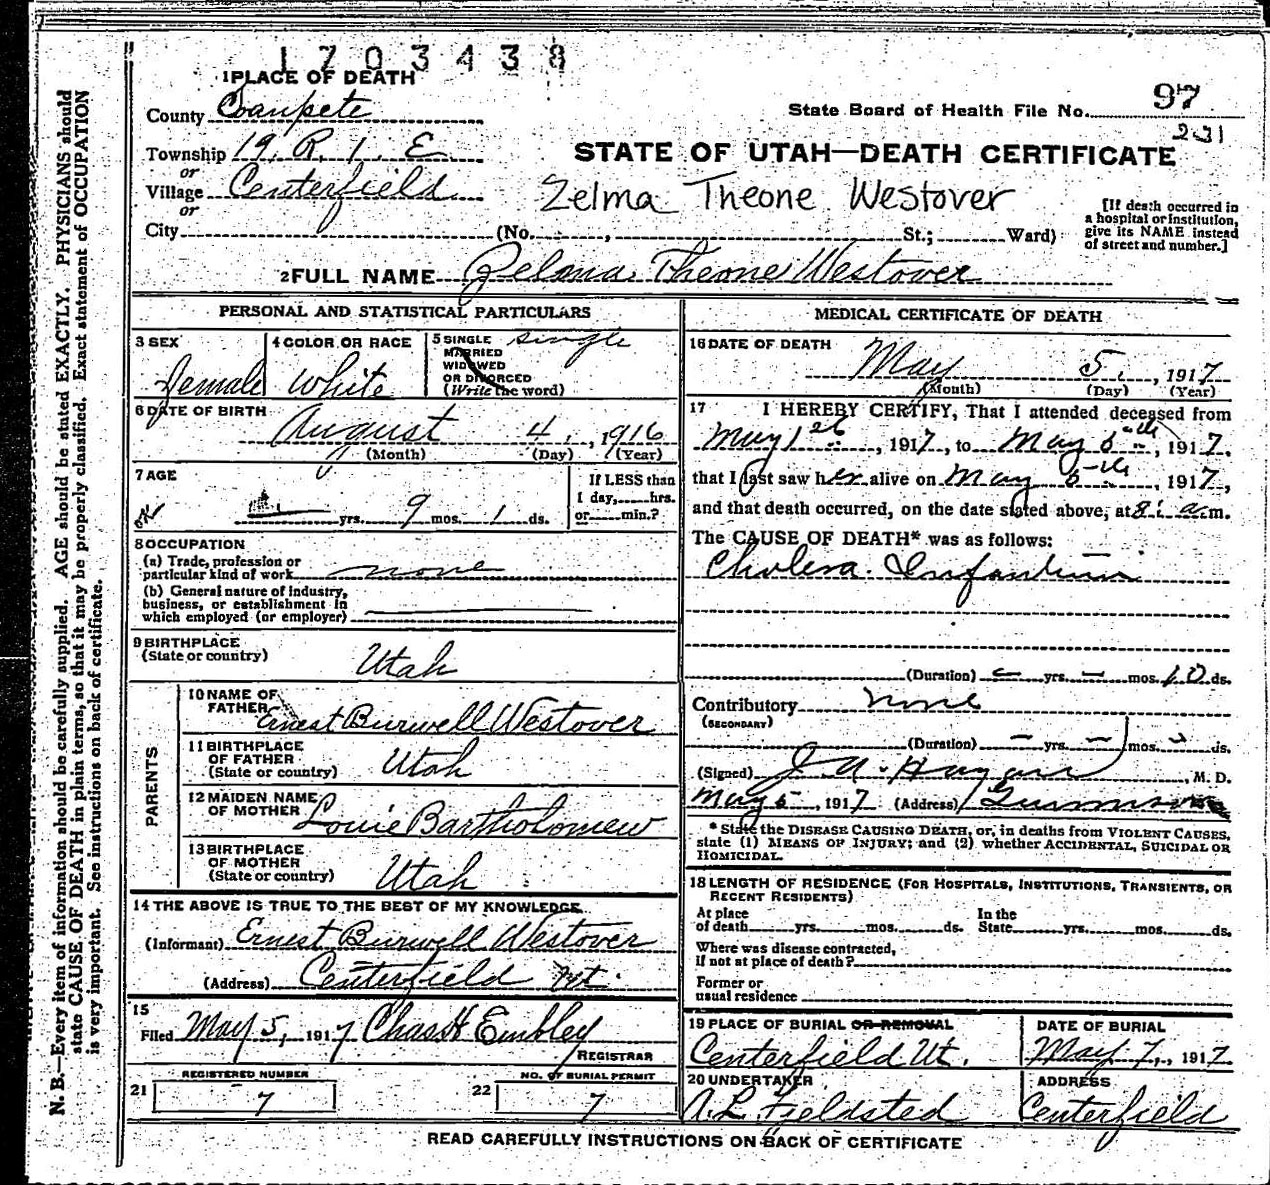 1703438
1 PLACE OF DEATH
County Sanpete
State Board of Health File No. 97
231
Township 19. R. 1. E
STATE OF UTAH—DEATH CERTIFICATE
or
Village Centerfield
Zelma Theone Westover
or
City (No. , St.; Ward)
[If death occurred in
a hospital or institution,
give its NAME instead
of street and number.]
2 FULL NAME Zelma Theone Westover
PERSONAL AND STATISTICAL PARTICULARS
3 SEX
female
4 COLOR OR RACE
White
5 SINGLE
MARRIED
WIDOWED
OR DIVORCED
(Write the word)
single
6 DATE OF BIRTH
August 4, 1916
(Month) (Day) (Year)
7 AGE
OK
yrs. 9 mos. 1 ds.
If LESS than
1 day, hrs.
or min.?
8 OCCUPATION
(a) Trade, profession or
particular kind of work none
(b) General nature of industry,
business, or establishment in
which employed (or employer)
9 BIRTHPLACE
(State or country) Utah
PARENTS
10 NAME OF
FATHER Ernest Burwell Westover
11 BIRTHPLACE
OF FATHER
(State or country) Utah
12 MAIDEN NAME
OF MOTHER Louie Bartholomew
13 BIRTHPLACE
OF MOTHER
(State or country) Utah
14 THE ABOVE IS TRUE TO THE BEST OF MY KNOWLEDGE
(Informant) Ernest Burwell Westover
(Address) Centerfield Ut.
15
Filed May 5, 1917 Chas H Embley
REGISTRAR
REGISTERED NUMBER
21 7
NO. OF BURIAL PERMIT
22 7
MEDICAL CERTIFICATE OF DEATH
16 DATE OF DEATH
May 5, 1917
(Month) (Day) (Year)
17 I HEREBY CERTIFY, That I attended deceased from
May 1st, 1917, to May 5th, 1917,
that I last saw her alive on May 5th, 1917,
and that death occurred, on the date stated above, at 8: a m.
The CAUSE OF DEATH* was as follows:
Cholera Infantum
(Duration) — yrs. — mos. 10 ds.
Contributory none
(SECONDARY)
(Duration) — yrs. — mos. ds.
(Signed) J A Hagan, M. D.
May 5, 1917 (Address) Gunnison
* State the DISEASE CAUSING DEATH, or, in deaths from VIOLENT CAUSES,
state (1) MEANS OF INJURY; and (2) whether ACCIDENTAL, SUICIDAL OR
HOMICIDAL.
18 LENGTH OF RESIDENCE (FOR HOSPITALS, INSTITUTIONS, TRANSIENTS, OR
RECENT RESIDENTS)
At place
of death yrs. mos. ds.
In the
State yrs. mos. ds.
Where was disease contracted,
if not at place of death?
Former or
usual residence
19 PLACE OF BURIAL OR REMOVAL
Centerfield Ut.
DATE OF BURIAL
May 7, 1917
20 UNDERTAKER
A. L. Fjeldsted
ADDRESS
Centerfield
READ CAREFULLY INSTRUCTIONS ON BACK OF CERTIFICATE
N. B.—Every item of information should be carefully supplied. AGE should be stated EXACTLY. PHYSICIANS should
state CAUSE OF DEATH in plain terms, so that it may be properly classified. Exact statement of OCCUPATION
is very important. See instructions on back of certificate.